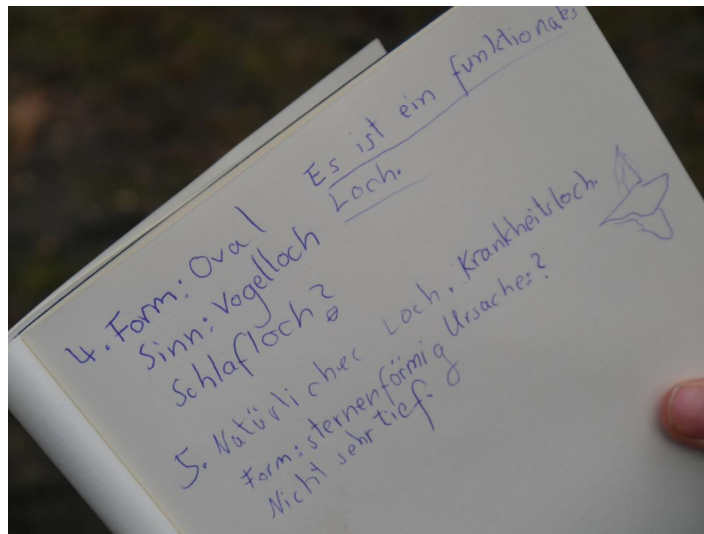 4. Form: Oval
Sinn: Vogelloch
Schlafloch?
Es ist ein funktionales
Loch.
5. Natürliches Loch. Krankheitsloch.
Form: sternenförmig Ursache:?
Nicht sehr tief.